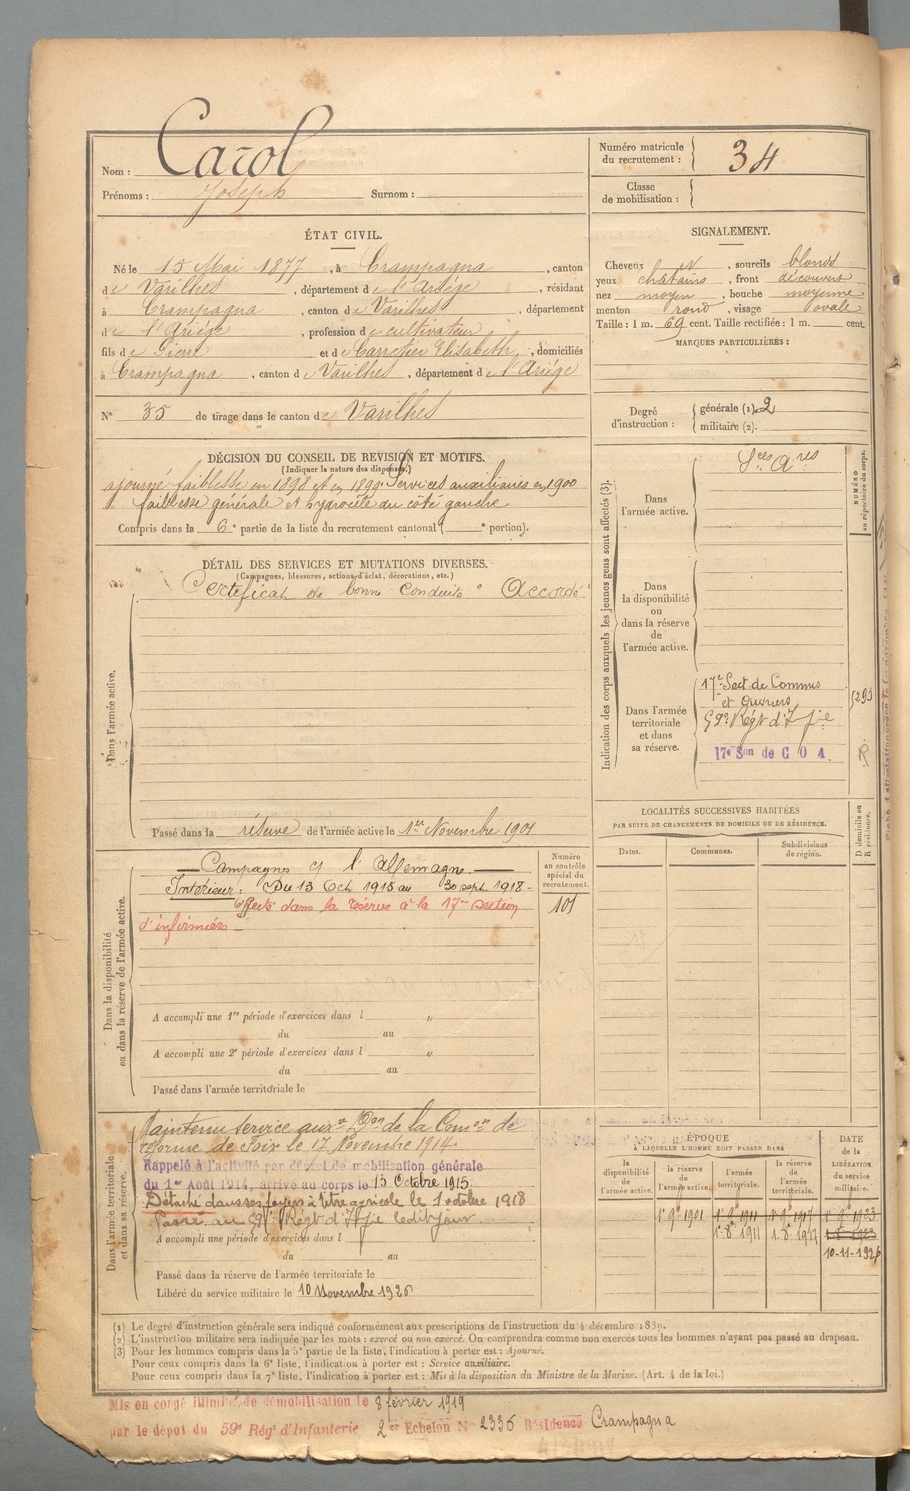 Nom : Carol
Prénoms : Joseph Surnom :
Numéro matricule du recrutement : 34
Classe de mobilisation :
ÉTAT CIVIL.
Né le 15 Mai 1877, à Crampagna, canton
de Varilhes, département de l'Ariège, résidant
à Crampagna, canton de Varilhes, département
de l'Ariège, profession de cultivateur
fils de Pierre et de Carretier Elisabeth, domiciliés
à Crampagna, canton de Varilhes, département de l'Ariège
N° 35 de tirage dans le canton de Varilhes
SIGNALEMENT.
Cheveux et, sourcils blonds
yeux châtains, front découvert
nez moyen, bouche moyenne
menton rond, visage ovale
Taille : 1 m. 69 cent. Taille rectifiée : 1 m. cent.
MARQUES PARTICULIÈRES :
Degré d'instruction : générale (1). 2
militaire (2).
DÉCISION DU CONSEIL DE REVISION ET MOTIFS.
(Indiquer la nature des dispenses.)
ajourné faiblesse en 1898 et en 1899. Services auxiliaires en 1900
faiblesse générale et hydrocèle du côté gauche
Compris dans la 6e partie de la liste du recrutement cantonal ( e portion).
DÉTAIL DES SERVICES ET MUTATIONS DIVERSES.
(Campagnes, blessures, actions d'éclat, décorations, etc.)
Dans l'armée active.
Certificat de bonne conduite " Accordé
Passé dans la réserve de l'armée active le 1er Novembre 1901
Indication des corps auxquels les jeunes gens sont affectés (3).
NUMÉRO au répertoire du corps.
Dans l'armée active.
Sces Ares
Dans la disponibilité ou dans la réserve de l'armée active.
Dans l'armée territoriale et dans sa réserve.
17e Sect. de Commis
et Ouvriers
59e Régt d'Infie
17e Son de C O A.
5293
R
LOCALITÉS SUCCESSIVES HABITÉES
PAR SUITE DE CHANGEMENTS DE DOMICILE OU DE RÉSIDENCE.
D domicile ou R résidence.
Dates. Communes. Subdivisions de région.
Dans la disponibilité ou dans la réserve de l'armée active.
Campagne c/ l'Allemagne.
Intérieur : Du 13 Oct 1915 au 30 sept 1918
Affecté dans la réserve à la 17me section
d'infirmiers
Numéro au contrôle spécial du recrutement.
101
A accompli une 1re période d'exercices dans l "
du au
A accompli une 2e période d'exercices dans l "
du au
Passé dans l'armée territoriale le
Dans l'armée territoriale et dans sa réserve.
Maintenu service auxre Don de la Comon de
réforme de Foix le 17 Novembre 1914.
Rappelé à l'activité par décret de mobilisation générale
du 1er Août 1914, arrivé au corps le 13 Octobre 1915.
Détaché dans ses foyers à titre agricole le 1 octobre 1918
Passé au 59e Régt d'Infie ledit jour
A accompli une période d'exercices dans l
du au
Passé dans la réserve de l'armée territoriale le
Libéré du service militaire le 10 Novembre 1926
ÉPOQUE
A LAQUELLE L'HOMME DOIT PASSER DANS
DATE de la LIBÉRATION du service militaire.
la disponibilité de l'armée active. la réserve de l'armée active. l'armée territoriale. la réserve de l'armée territoriale.
1-9bre 1901 1-9bre 1911 1-9bre 1917 1-9bre 1923
1-8-1911 1-8-1917 1-8-1923
10-11-1926
(1) Le degré d'instruction générale sera indiqué conformément aux prescriptions de l'instruction du 4 décembre 1889.
(2) L'instruction militaire sera indiquée par les mots : exercé ou non exercé. On comprendra comme non exercés tous les hommes n'ayant pas passé au drapeau.
(3) Pour les hommes compris dans la 5e partie de la liste, l'indication à porter est : Ajourné.
Pour ceux compris dans la 6e liste, l'indication à porter est : Service auxiliaire.
Pour ceux compris dans la 7e liste, l'indication à porter est : Mis à la disposition du Ministre de la Marine. (Art. 4 de la loi.)
Mis en congé illimité de démobilisation le 8 février 1919
par le dépôt du 59e Régt d'Infanterie 2er Echelon N° 2336 Résidence Crampagna